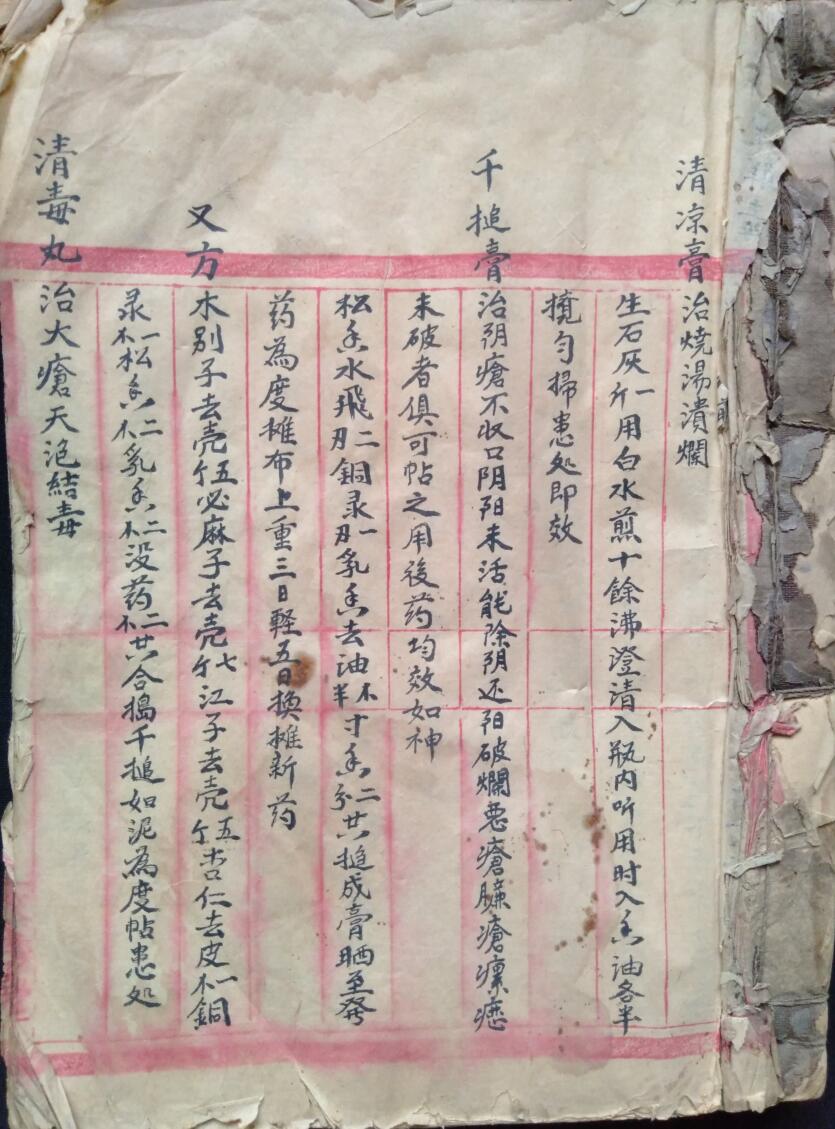 清凉膏 治燒湯潰爛
生石灰一斤用白水煎十餘沸澄清入瓶内听用时入香油各半
攪匀掃患处即效
千搥膏 治阴瘡不收口阴阳未活能除阴还阳破爛恶瘡臁瘡瘰癧
未破者俱可帖之用後药均效如神
松香水飛二刄銅录一刄乳香去油半寸香二分共搥成膏晒至發
药為度摊布上重三日輕五日換摊新药
又方 木别子去壳五个必麻子去壳七个江子去壳五个杏仁去皮一 銅
录一 松香二 乳香二 没药二 共合搗千搥如泥為度帖患处
清毒丸 治大瘡天泡結毒